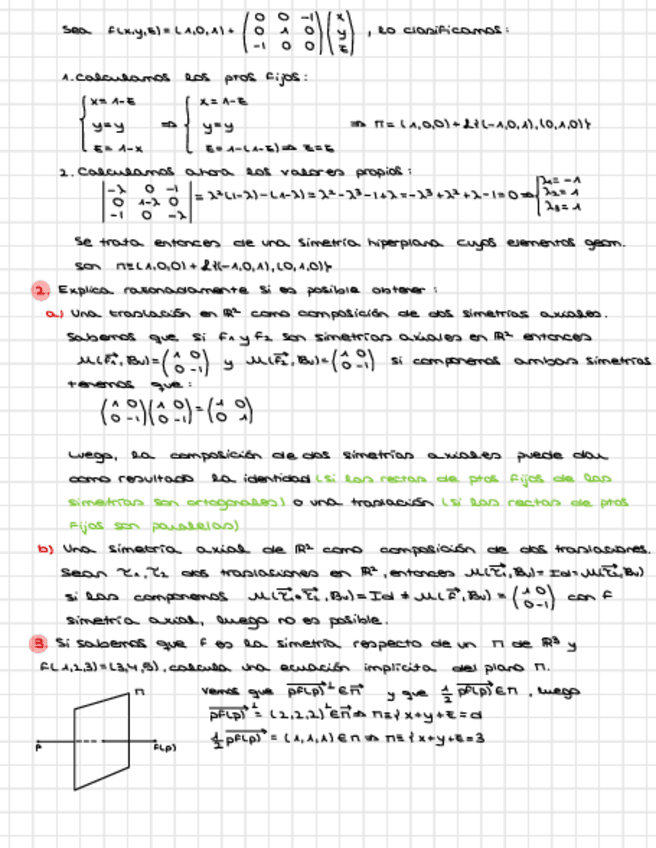 Sea f(x,y,z)=(1,0,1)+ \begin{pmatrix} 0 & 0 & -1 \\ 0 & 1 & 0 \\ -1 & 0 & 0 \end{pmatrix} \begin{pmatrix} x \\ y \\ z \end{pmatrix} , lo clasificamos:
1. Calculamos los ptos fijos:
{ x=1-z  y=y  z=1-x ⇒ { x=1-z  y=y  z=1-(1-z) ⇒ z=z ⇒ π=(1,0,0)+L{(-1,0,1),(0,1,0)}
2. Calculamos ahora los valores propios:
\begin{vmatrix} -λ & 0 & -1 \\ 0 & 1-λ & 0 \\ -1 & 0 & -λ \end{vmatrix} = λ²(1-λ)-(1-λ)=λ²-λ³-1+λ=-λ³+λ²+λ-1=0 ⇒ { λ₁=-1  λ₂=1  λ₃=1
Se trata entonces de una simetría hiperplana cuyos elementos geom.
son π≡(1,0,0)+L{(-1,0,1),(0,1,0)}
2. Explica razonadamente si es posible obtener:
a) Una traslación en ℝ² como composición de dos simetrías axiales.
Sabemos que si f₁ y f₂ son simetrías axiales en ℝ² entonces
M(f₁,Bu)=\begin{pmatrix} 1 & 0 \\ 0 & -1 \end{pmatrix} y M(f₂,Bu)=\begin{pmatrix} 1 & 0 \\ 0 & -1 \end{pmatrix} si componemos ambas simetrías
tenemos que:
\begin{pmatrix} 1 & 0 \\ 0 & -1 \end{pmatrix} \begin{pmatrix} 1 & 0 \\ 0 & -1 \end{pmatrix} = \begin{pmatrix} 1 & 0 \\ 0 & 1 \end{pmatrix}
Luego, la composición de dos simetrías axiales puede dar
como resultado la identidad (si las rectas de ptos fijos de las
simetrías son ortogonales) o una traslación (si las rectas de ptos
fijos son paralelas)
b) Una simetría axial de ℝ² como composición de dos traslaciones.
Sean τ₁,τ₂ dos traslaciones en ℝ², entonces M(τ₁,Bu)=Id=M(τ₂,Bu)
si las componemos M(τ₁∘τ₂,Bu)=Id ≠ M(f,Bu)=\begin{pmatrix} 1 & 0 \\ 0 & -1 \end{pmatrix} con f
simetría axial, luego no es posible.
3. Si sabemos que f es la simetría respecto de un π de ℝ³ y
f(1,2,3)=(3,4,5), calcula una ecuación implícita del plano π.
π
P
f(p)
Vemos que pf(p)^⊥ ∈ π y que ½ pf(p) ∈ π, luego
pf(p)^⊥ = (2,2,2)^⊥ ∈ π ⇒ π≡{x+y+z=d
½ pf(p) = (1,1,1) ∈ π ⇒ π≡{x+y+z=3